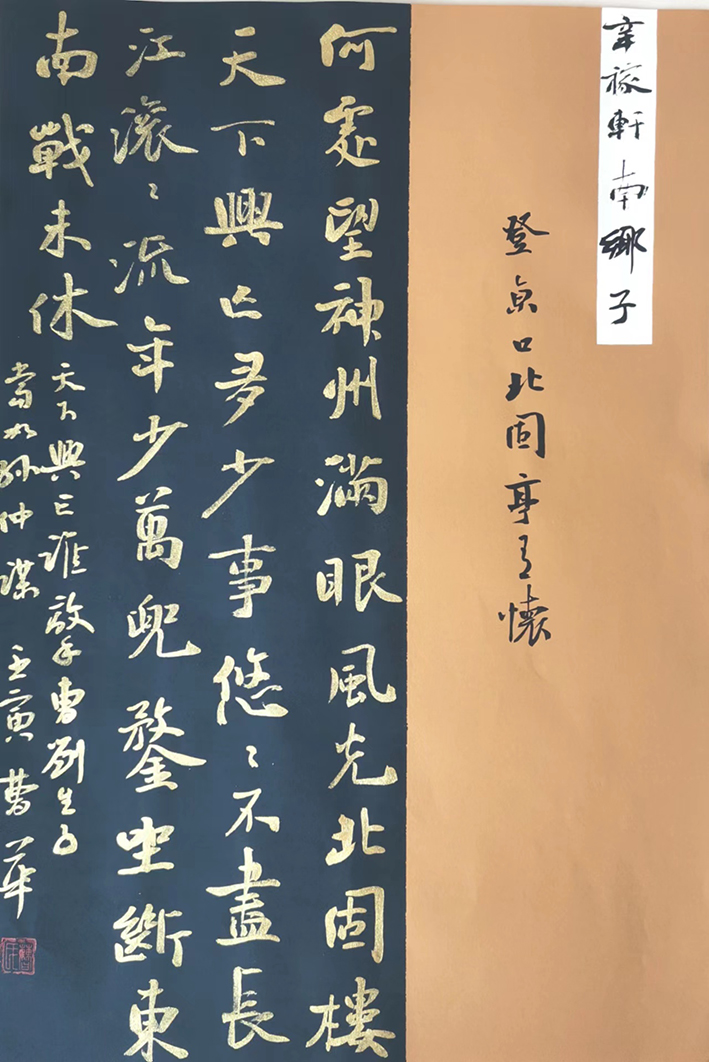 辛稼軒南鄉子
登京口北固亭有懷
何處望神州滿眼風光北固樓
天下興亡多少事悠〻不盡長
江滾〻流年少萬兜鍪坐斷東
南戰未休
天下興亡誰敵手曹劉生子
當如孫仲謀 壬寅曹華